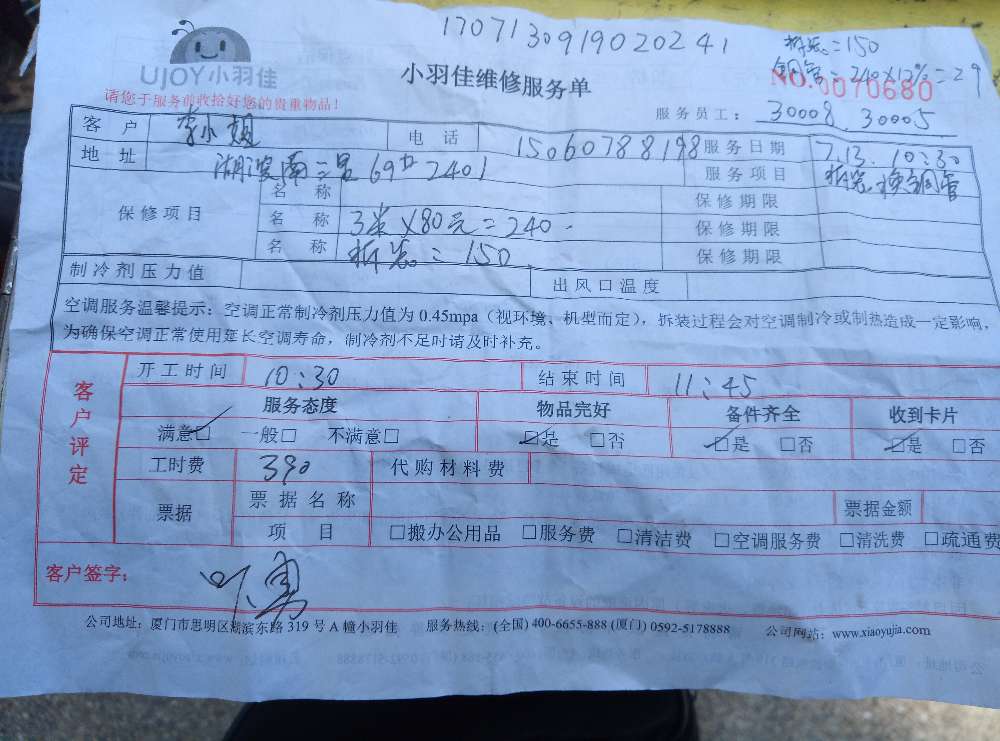 1707130919020241
拆装=150
铜管=240×12%=29
UJOY小羽佳
小羽佳维修服务单
NO.0070680
请您于服务前收拾好您的贵重物品!
服务员工: 30008 30005
客户 李小姐 电话 15060788198 服务日期 7.13. 10:30
地址 湖滨南二里69# 2401 服务项目 拆装换铜管
保修项目 名称 保修期限
名称 3米×80元=240. 保修期限
名称 拆装=150 保修期限
制冷剂压力值 出风口温度
空调服务温馨提示:空调正常制冷剂压力值为 0.45mpa(视环境、机型而定),拆装过程会对空调制冷或制热造成一定影响,
为确保空调正常使用延长空调寿命,制冷剂不足时请及时补充。
客户评定
开工时间 10:30 结束时间 11:45
服务态度 物品完好 备件齐全 收到卡片
满意□ 一般□ 不满意□ □是 □否 □是 □否 □是 □否
工时费 390 代购材料费
票据 票据名称 票据金额
项目 □搬办公用品 □服务费 □清洁费 □空调服务费 □清洗费 □疏通费
客户签字:
公司地址: 厦门市思明区湖滨东路 319 号 A 幢小羽佳 服务热线: (全国) 400-6655-888 (厦门) 0592-5178888 公司网站: www.xiaoyujia.com